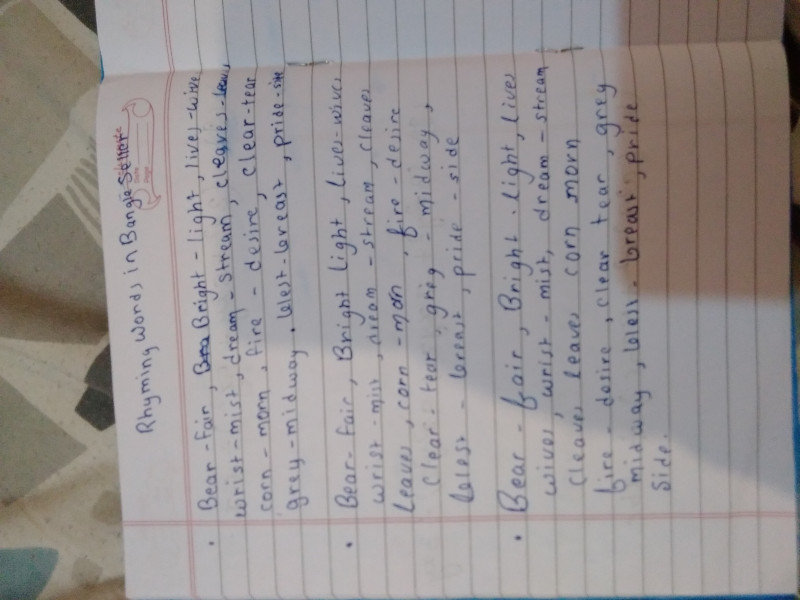 Rhyming Words in Bangle Seller
Bear - Fair, Bright - light, lives - wives
wrist - mist, dream - stream, cleaves - leaves
corn - morn, fire - desire, clear - tear
grey - midway, blest - breast, pride - side
Bear - Fair, Bright light, lives - wives
wrist - mist, dream - stream, cleaves
leaves, corn - mon, fire - desire
clear - tear, grey - midway,
blest - breast, pride - side
Bear - fair, Bright - light, lives
wives, wrist - mist, dream - stream
cleaves leaves corn morn
fire - desire, clear tear, grey
midway, blest - breast, pride
side.